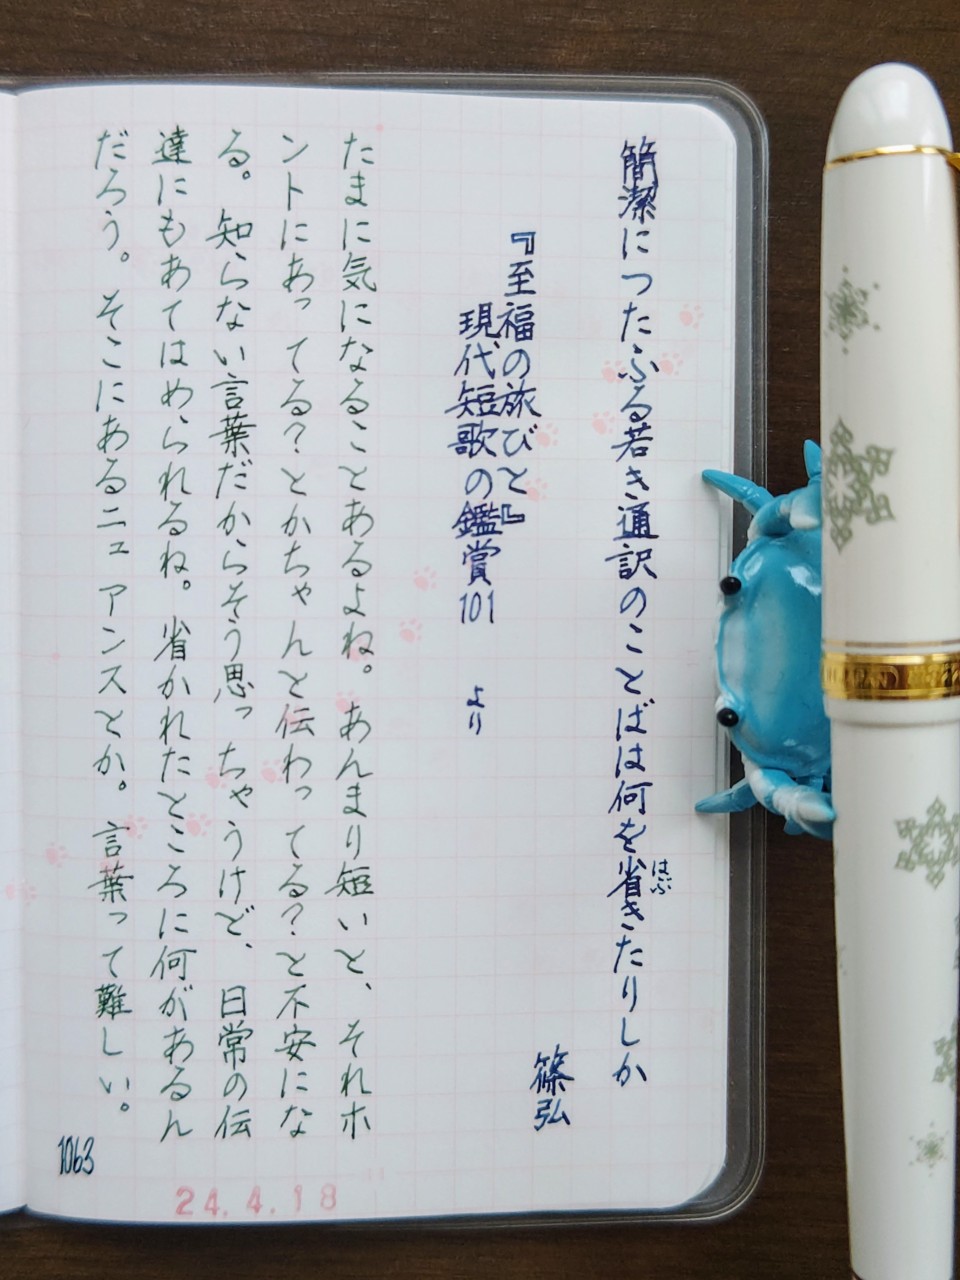 簡潔につたふる若き通訳のことばは何を省きたりしか
はぶ
篠弘
『至福の旅びと』
現代短歌の鑑賞101 より
たまに気になることあるよね。あんまり短いと、それホ
ントにあってる?とかちゃんと伝わってる?と不安にな
る。知らない言葉だからそう思っちゃうけど、日常の伝
達にもあてはめられるね。省かれたところに何があるん
だろう。そこにあるニュアンスとか。言葉って難しい。
1063
24.4.18